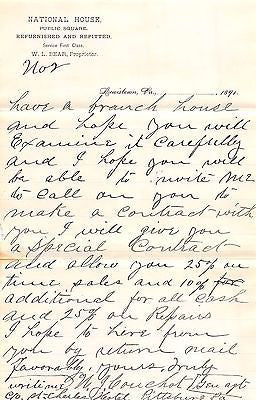 NATIONAL HOUSE,
PUBLIC SQUARE,
REFURNISHED AND REFITTED,
Service First Class,
W. L. BEAR, Proprietor.
Lewistown, Pa., 189
Nov
have a branch house
and hope you will
Examine it carefully
and I hope you will
be able to write me
to call on you to
make a contract with
you I will give you
a Special Contract
and allow you 25% on
time sales and 10% for
additional for all cash
and 25% on Repairs
I hope to here from
you by return mail
favorably, yours, truly
write me Couchot Gen agt
St Charles Hotel Pittsburg Pa